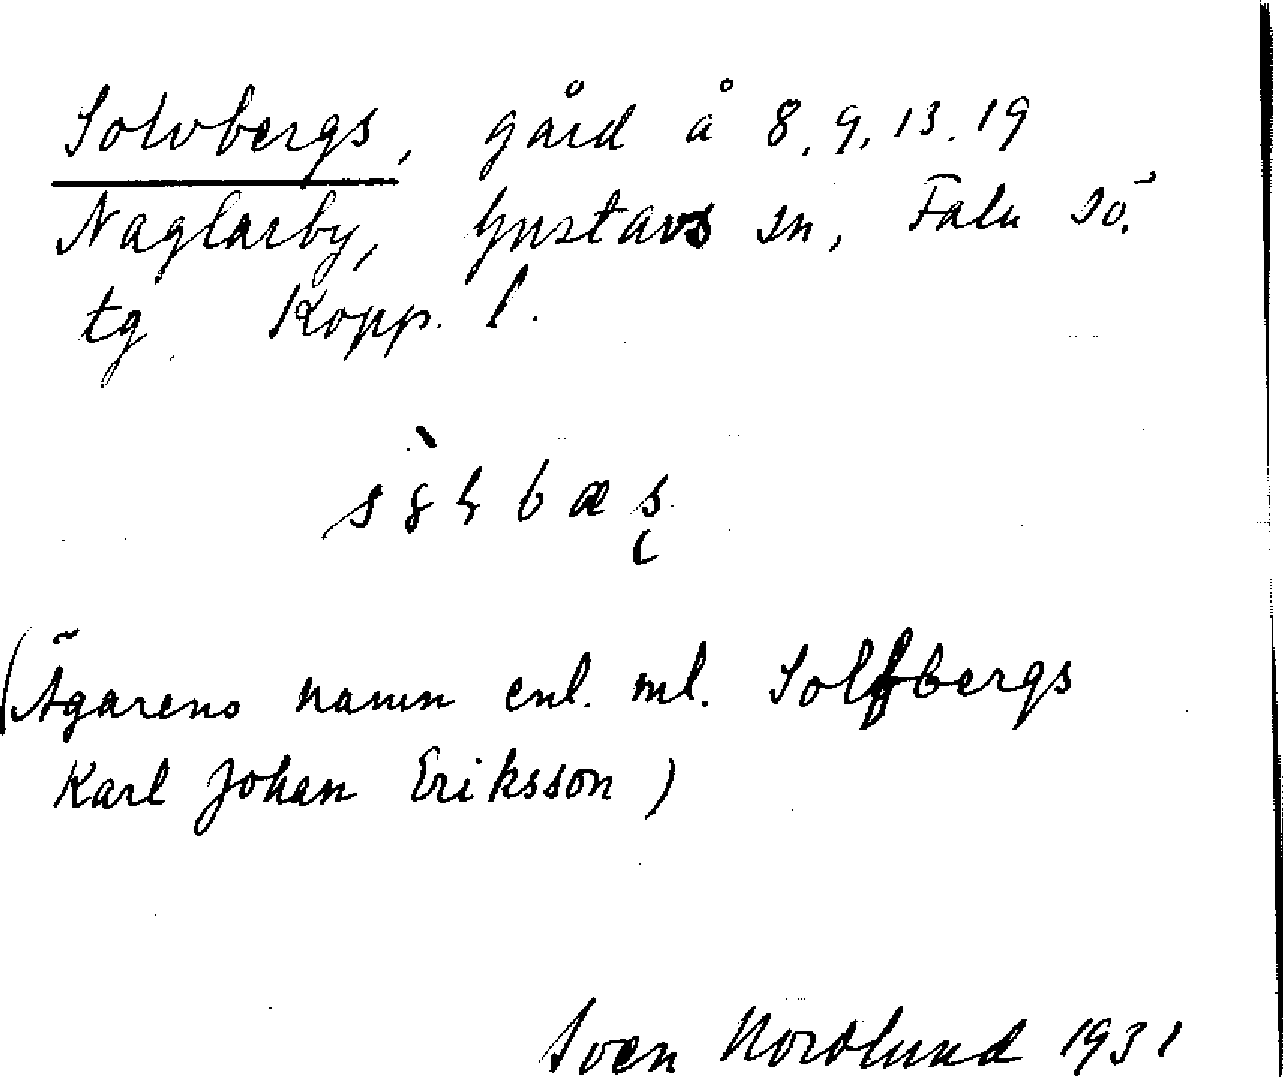 Solvbergs, gård å 8, 9, 13, 19
Naglarby, Gustavs sn, Falu sö.
tg Kopp. l.
(Ägarens namn enl. ml. Solfbergs
Karl Johan Eriksson)
Sven Nordlund 1931